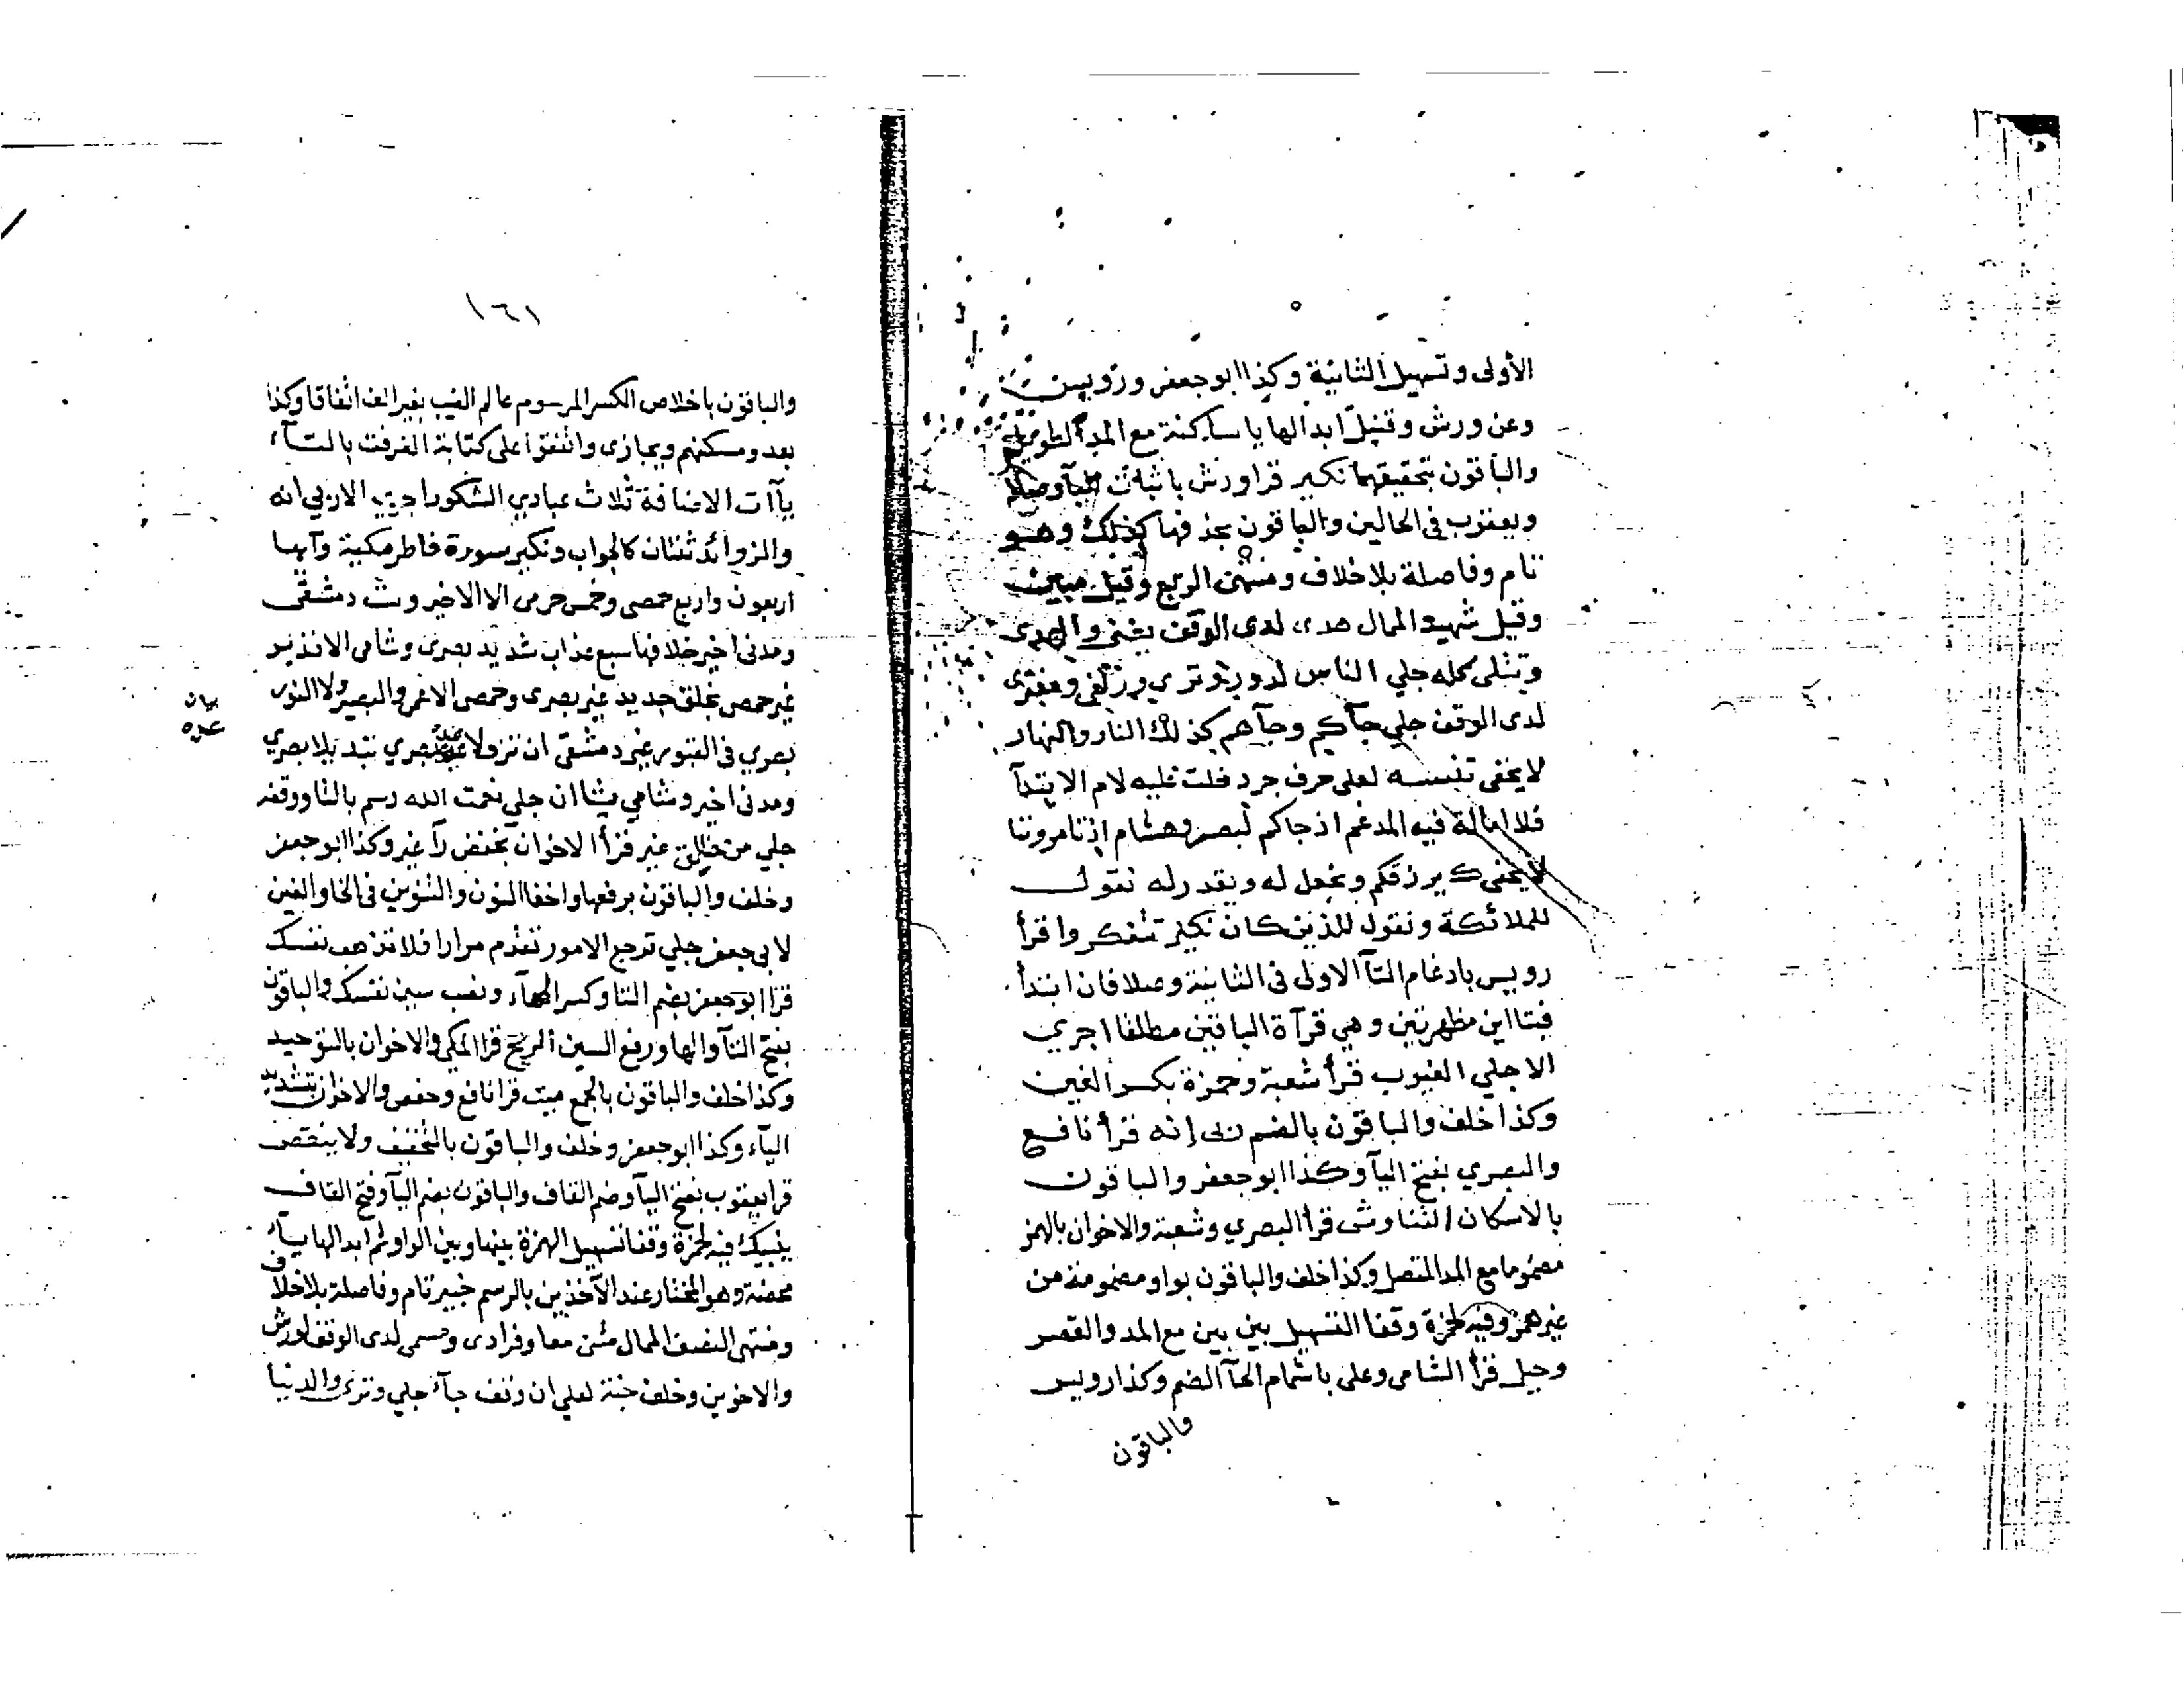 الأولى وتسهيل الثانية وكذا ابو جعفر ورويس
وعن ورش وقنبل ابدالها يا ساكنة مع المد الطويل
والباقون بتحقيقهما نكير قرا ورش باثبات اليآ وصلا
ويعقوب في الحالين والباقون بحذفها كذلك وهو
تام وفاصلة بلا خلاف ومنتهى الربع وقيل مبين
وقيل شهيد الممال هدى لدى الوقف يغشى والهدى
وتتلى كله جلي الناس لدور وترى وزلفى ومفترى
لدى الوقف جلي جآكم وجآهم كذلك النار والنهار
لا يخفى تنبيه لعلى حرف جر دخلت عليه لام الابتدآ
فلا امالة فيه المدغم اذ جاكم لبصر وهشام اذ تامروننا
لا يخفى ك يرزقكم ونجعل له ويقدر له نقول
للملائكة ونقول للذين كان نكير تتفكروا قرأ
رويس بادغام التآ الاولى فى الثانية وصلا فان ابتدأ
فبتااين مظهرتين وهي قرآة الباقين مطلقا اجري
الا جلي الغيوب قرأ شعبة وحمزة بكسر الغين
وكذا خلف والباقون بالضم ربى إنه قرأ نافع
والبصري بفتح اليآ وكذا ابو جعفر والباقون
بالاسكان التناوش قرا البصري وشعبة والاخوان بالهمز
مضموما مع المد المتصل وكذا خلف والباقون بواو مضمومة من
غير همز وفيه لحمزة وقفا التسهيل بين بين مع المد والقصر
وحيل قرأ الشامى وعلى باشمام الحآ الضم وكذا رويس
والباقون
١٦١
والباقون باخلاص الكسر المرسوم عالم الغيب بغير الف اتفاقا وكذا
بعد ومسكنهم ويجازى واتفقوا على كتابة الغرفت بالتآء
يآآت الاضافة ثلاث عبادي الشكور اجري الا ربي انه
والزوائد ثنتان كالجواب ونكير سورة فاطر مكية وآيها
اربعون واربع حمصى وخمس حرمى الا الاخير وست دمشقى
ومدنى اخير خلافها سبع عذاب شديد بصرى وشامى الا نذير
غير حمصى بخلق جديد غير بصرى وحمصى الاعمى والبصير ولا النور
بصري فى القبور غير دمشقى ان تزولا بصري تبديلا بصري
ومدنى اخير وشامي يشا ان جلي نعمت الله رسم بالتا ووقفه
جلي من خالق غير قرأ الاخوان بخفض رآ غير وكذا ابو جعفر
وخلف والباقون برفعها واخفا النون والتنوين فى الخا والغين
لابى جعفر جلي ترجع الامور تقدم مرارا فلا تذهب نفسك
قرا ابو جعفر بضم التا وكسر الهآء ونصب سين نفسك والباقون
بفتح التآ والها ورفع السين الريح قرا المكي والاخوان بالتوحيد
وكذا خلف والباقون بالجمع ميت قرا نافع وحفص والاخوان بتشديد
اليآء وكذا ابو جعفر وخلف والباقون بالتخفيف ولا ينقص
قرا يعقوب بفتح اليآ وضم القاف والباقون بضم اليآ وفتح القاف
ينبيك فيه لحمزة وقفا تسهيل الهمزة بينها وبين الواو ثم ابدالها يآء
محضة وهو المختار عند الآخذين بالرسم خبير تام وفاصلة بلا خلاف
ومنتهى النصف الممال مثنى معا وفرادى ومسمى لدى الوقف لورش
والاخوين وخلف جنة لعلي ان وقف جآء جلي وترى والدنيا
بيان